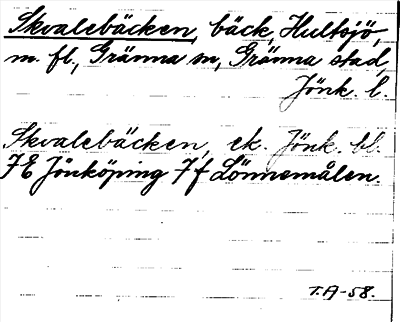 Skvalebäcken, bäck, Hultsjö,
m. fl., Gränna sn, Gränna stad,
Jönk. l.
Skvalebäcken, ek. Jönk. bl.
7E Jönköping 7f Lönnemålen.
T.A-58.